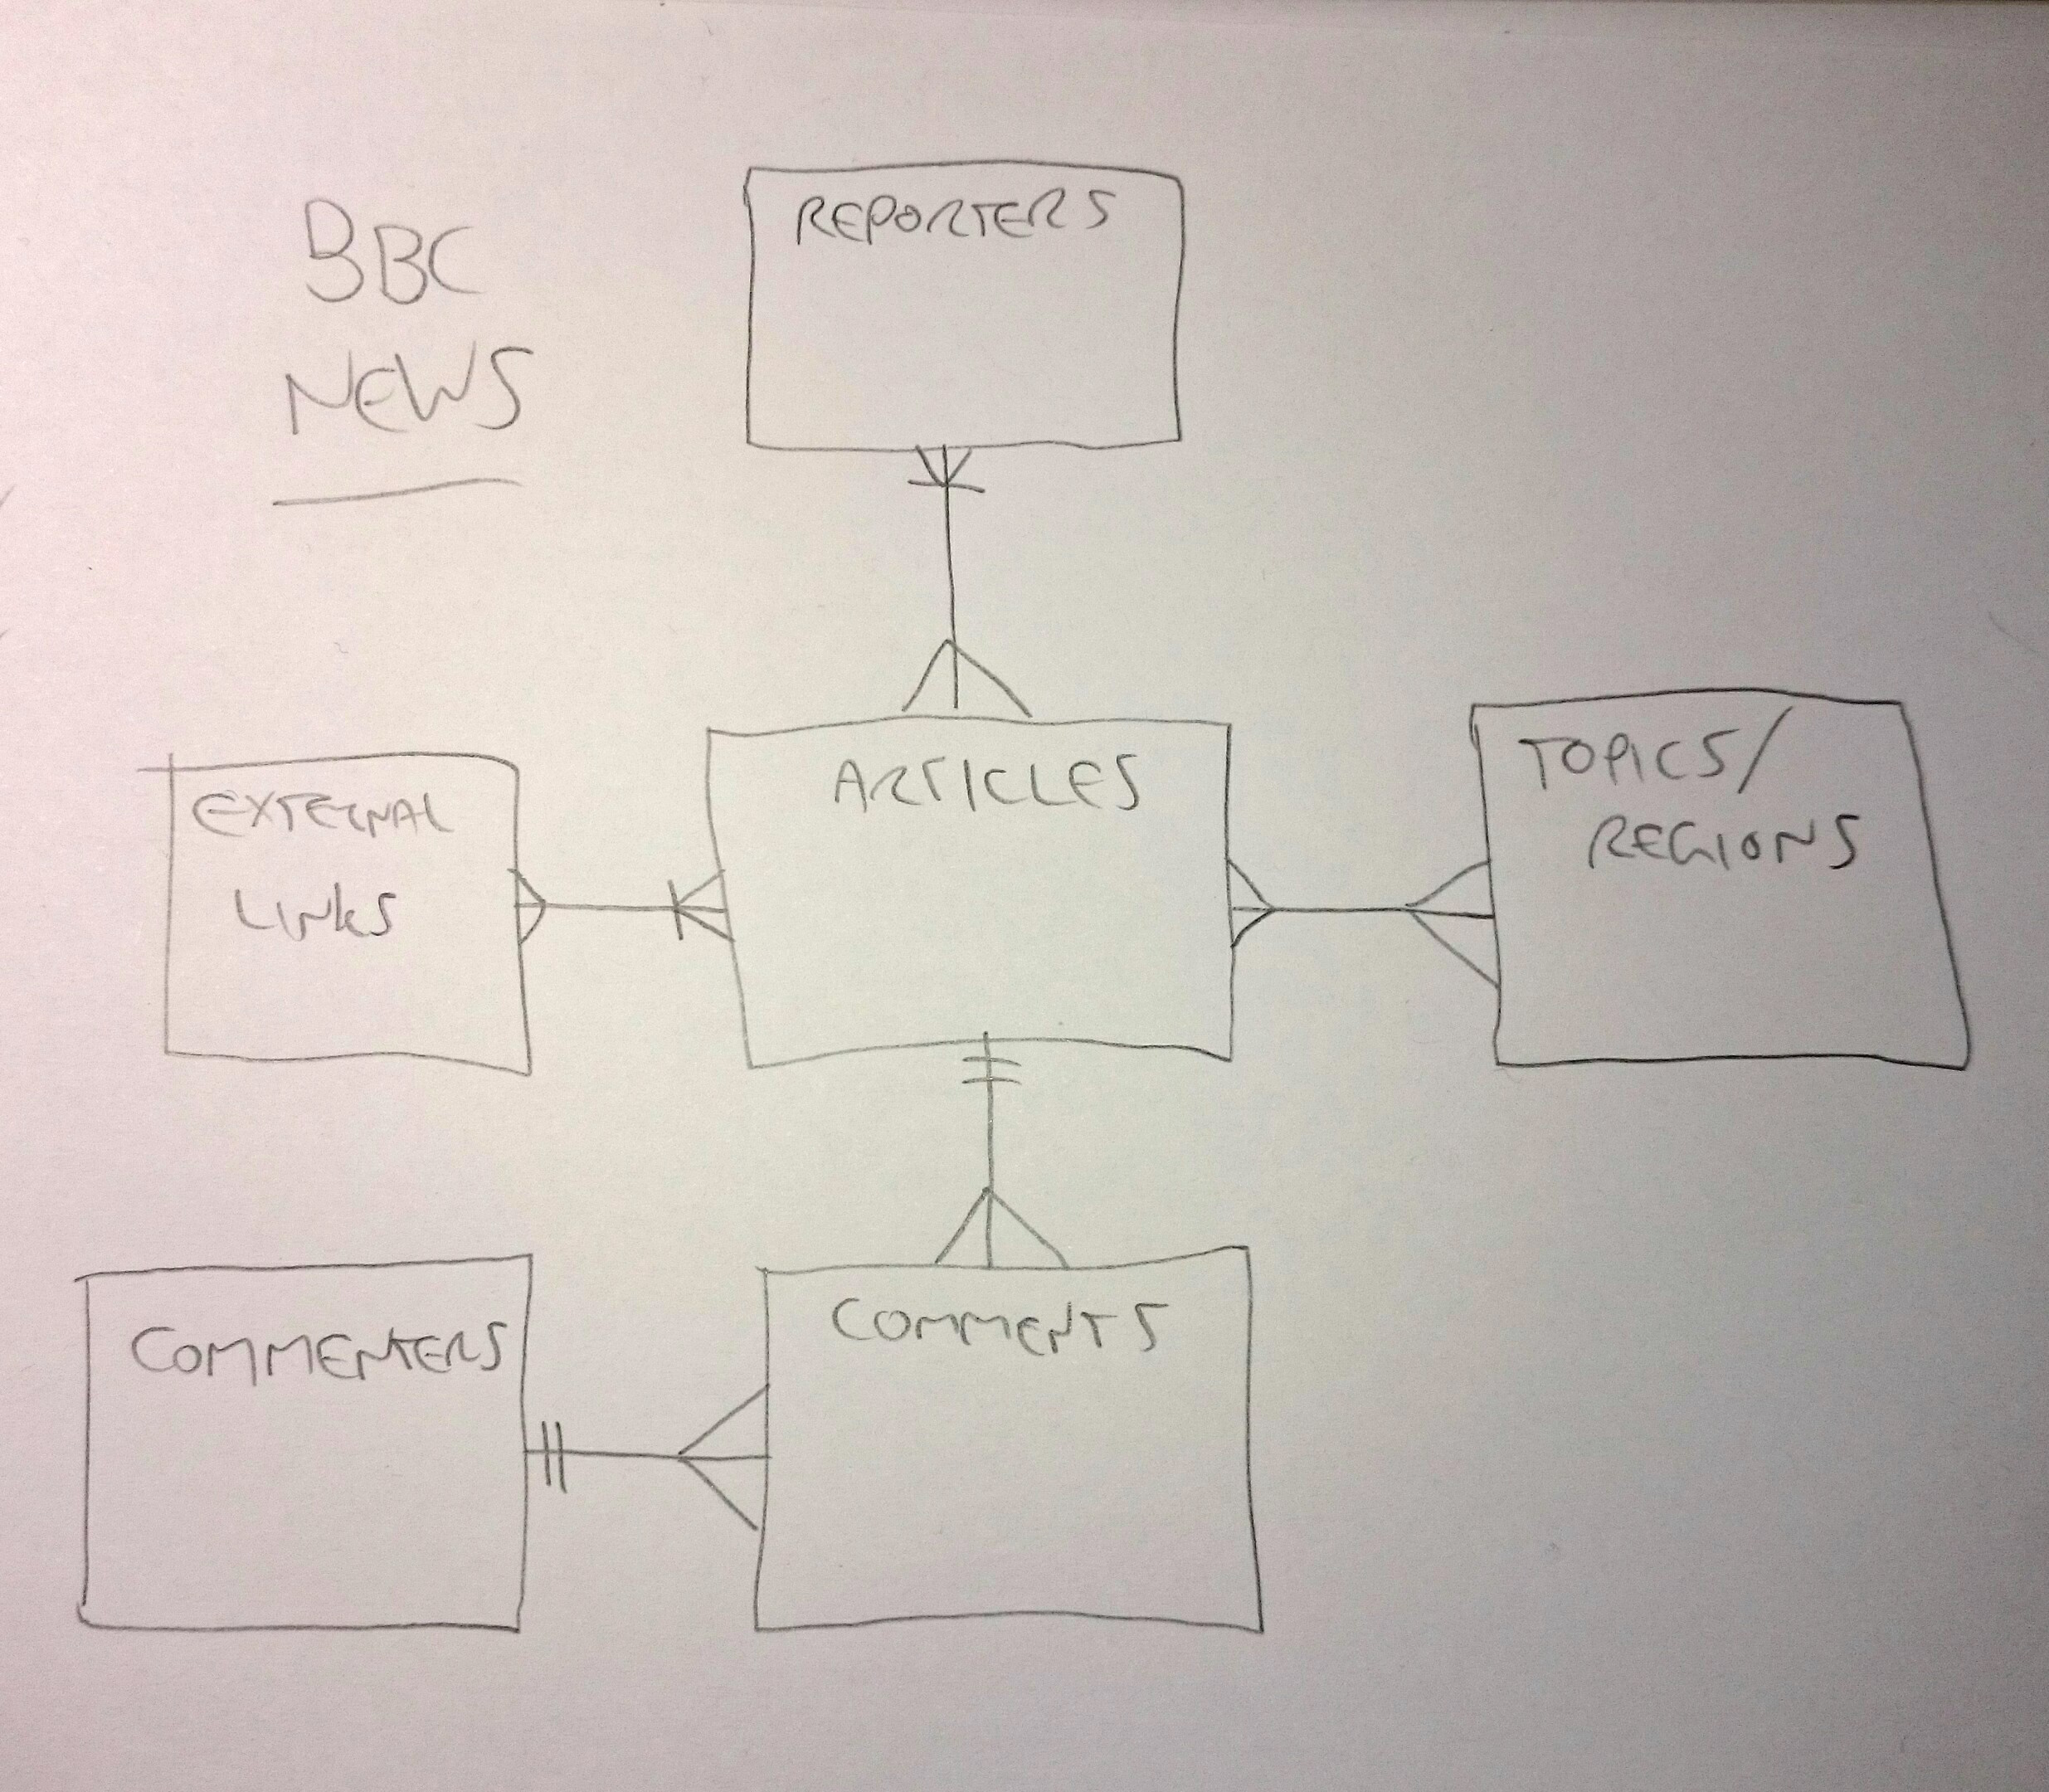 BBC
NEWS
REPORTERS
EXTERNAL
LINKS
ARTICLES
TOPICS/
REGIONS
COMMENTERS
COMMENTS